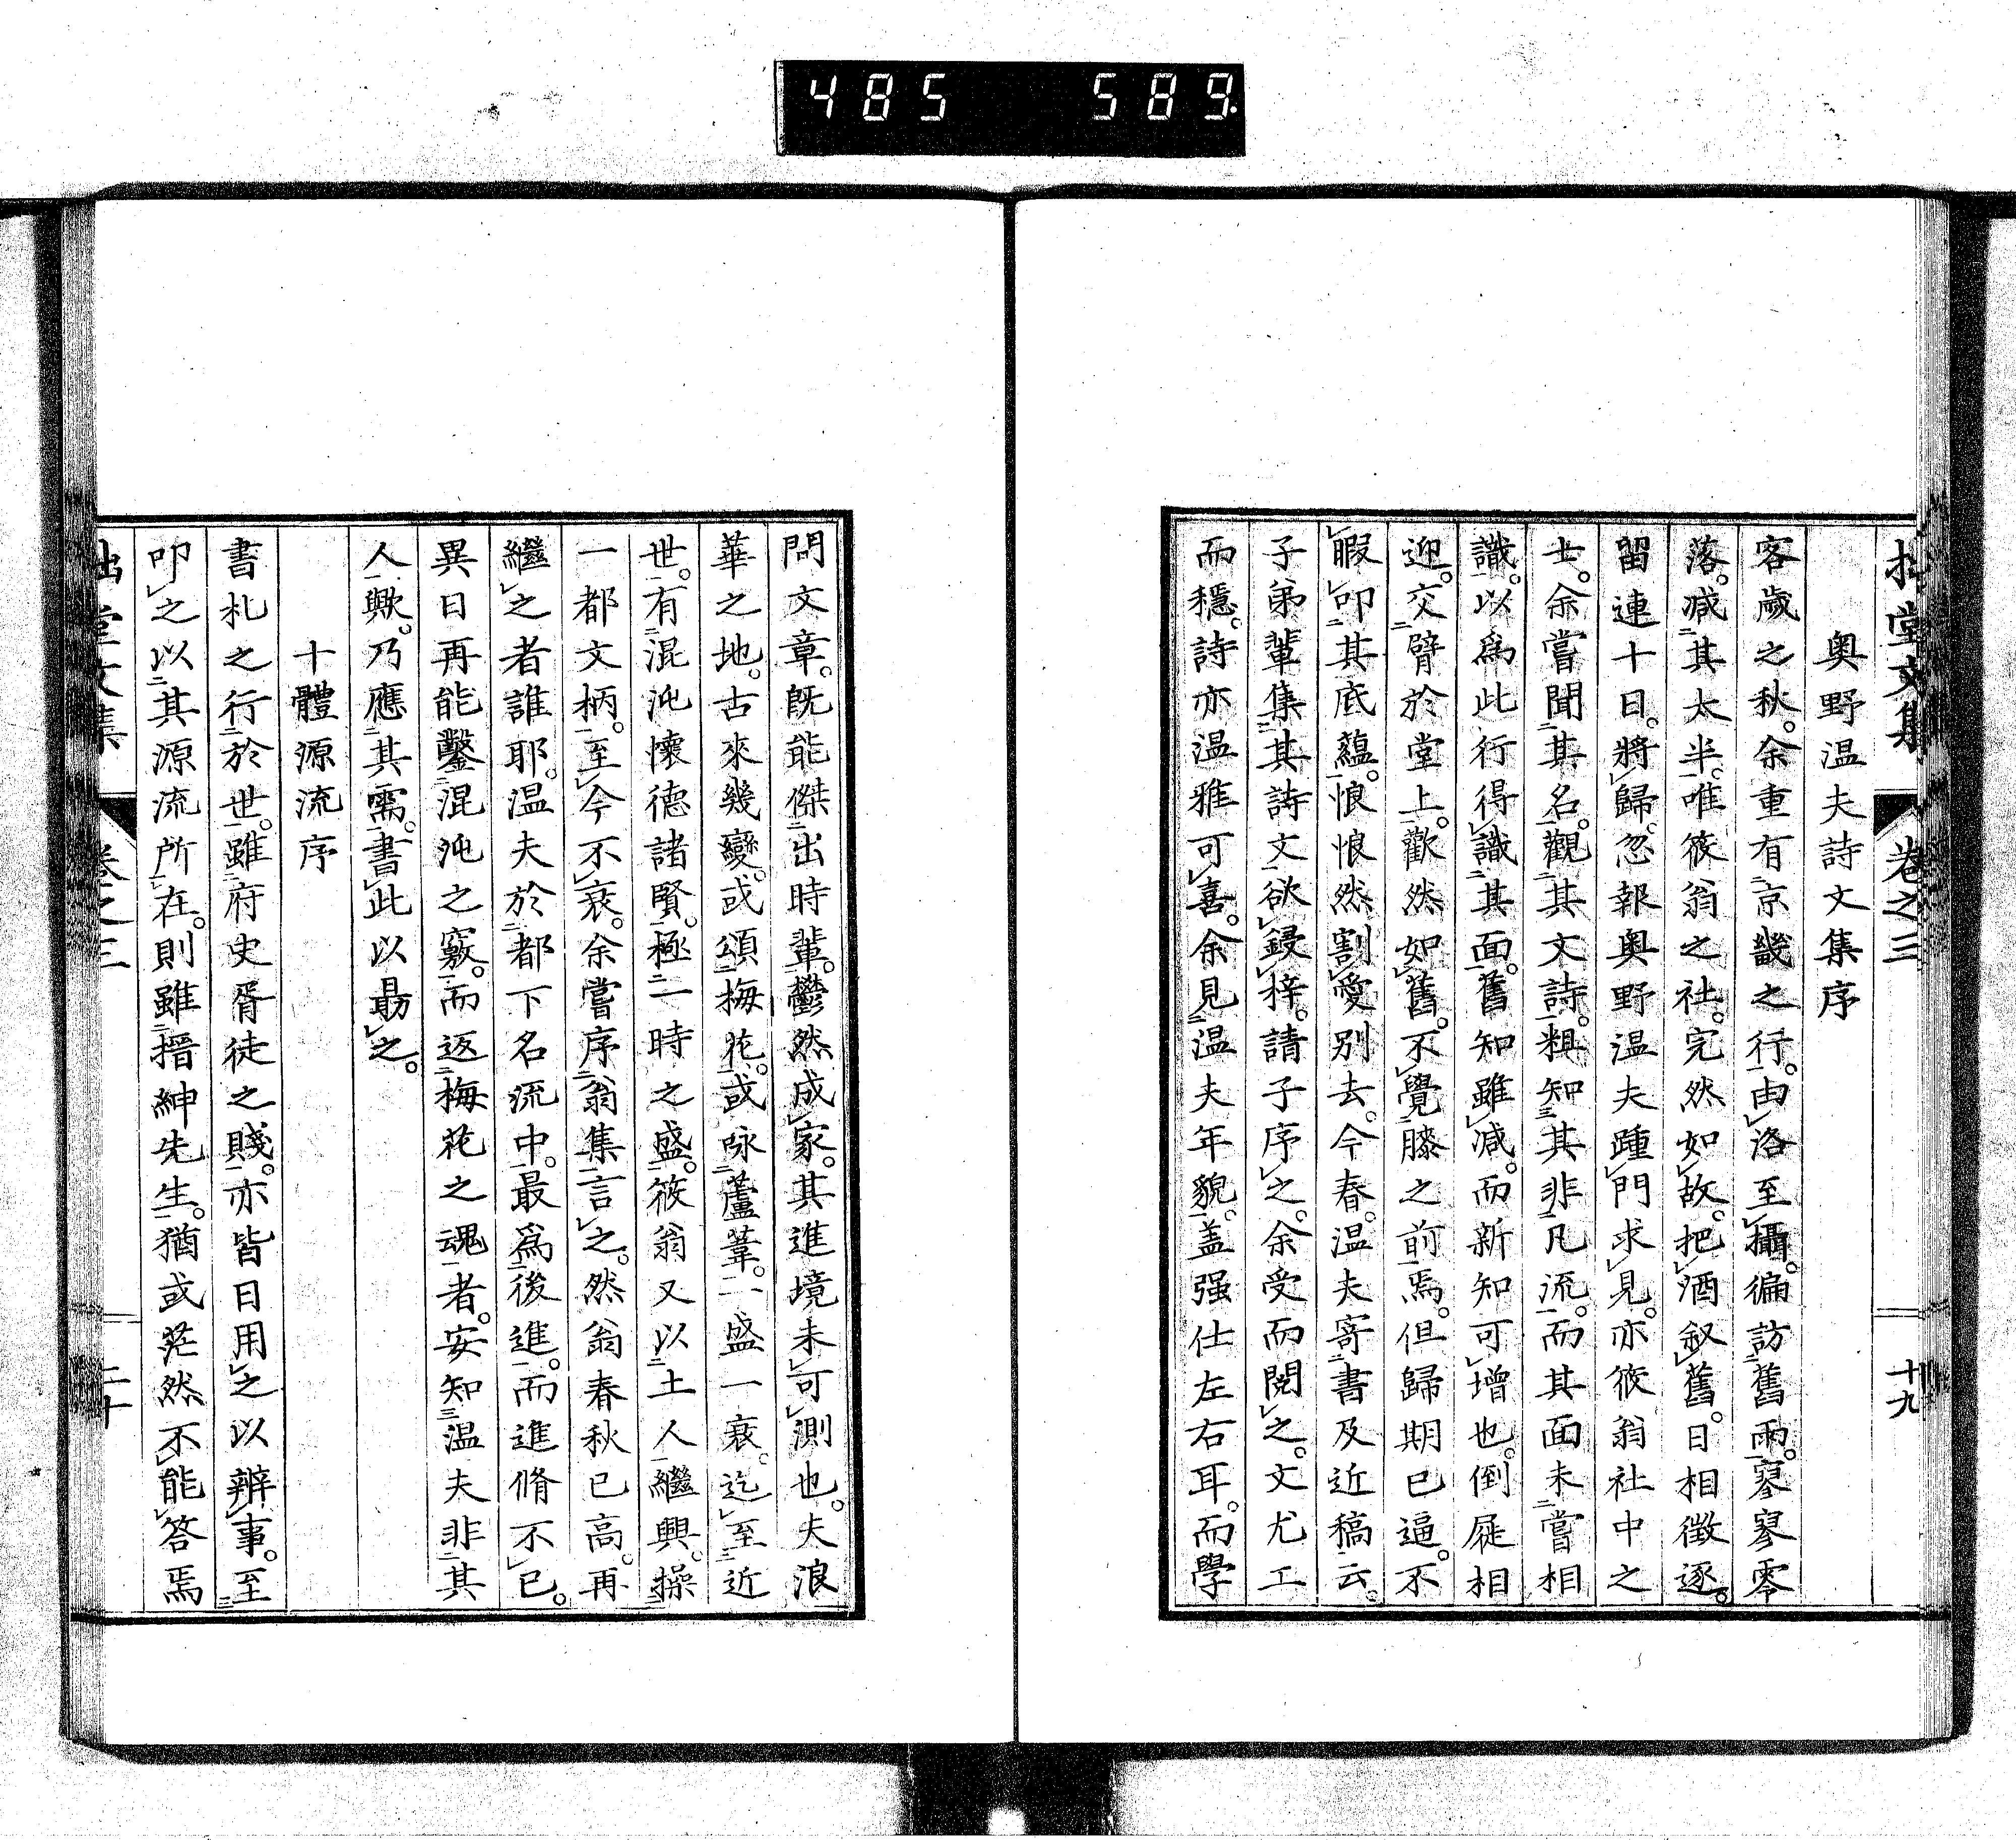 485 589.
拙堂文集 卷之三 十九
奥野温夫詩文集序
客歲之秋。余重有京畿之行。由洛至攝。徧訪舊雨。寥寥零
落。减其太半。唯筱翁之社。完然如故。把酒叙舊。日相徵逐。
留連十日。將歸。忽報奥野温夫踵門求見。亦筱翁社中之
士。余嘗聞其名。觀其文詩。粗知其非凡流。而其面未嘗相
識。以爲此行得識其面。舊知雖减。而新知可增也。倒屣相
迎。交臂於堂上。歡然如舊。不覺膝之前焉。但歸期已逼。不
暇叩其底蘊。悢悢然割愛別去。今春。温夫寄書及近稿云。
子弟輩集其詩文欲鋟梓。請予序之。余受而閱之。文尤工
而穩。詩亦温雅可喜。余見温夫年貌。盖强仕左右耳。而學
問文章。既能傑出時輩。鬱然成家。其進境未可測也。夫浪
華之地。古來幾變。或頌梅花。或咏蘆葦。一盛一衰。迄至近
世。有混沌懷德諸賢。極一時之盛。筱翁又以土人繼興。操
一都文柄。至今不衰。余嘗序翁集言之。然翁春秋已高。再
繼之者誰耶。温夫於都下名流中。最爲後進。而進脩不已。
異日再能鑿混沌之竅。而返梅花之魂者。安知温夫非其
人歟。乃應其需。書此以勗之。
十體源流序
書札之行於世。雖府史胥徒之賤。亦皆日用之以辨事。至
叩之以其源流所在。則雖搢紳先生。猶或茫然不能答焉
拙堂文集 卷之三 二十